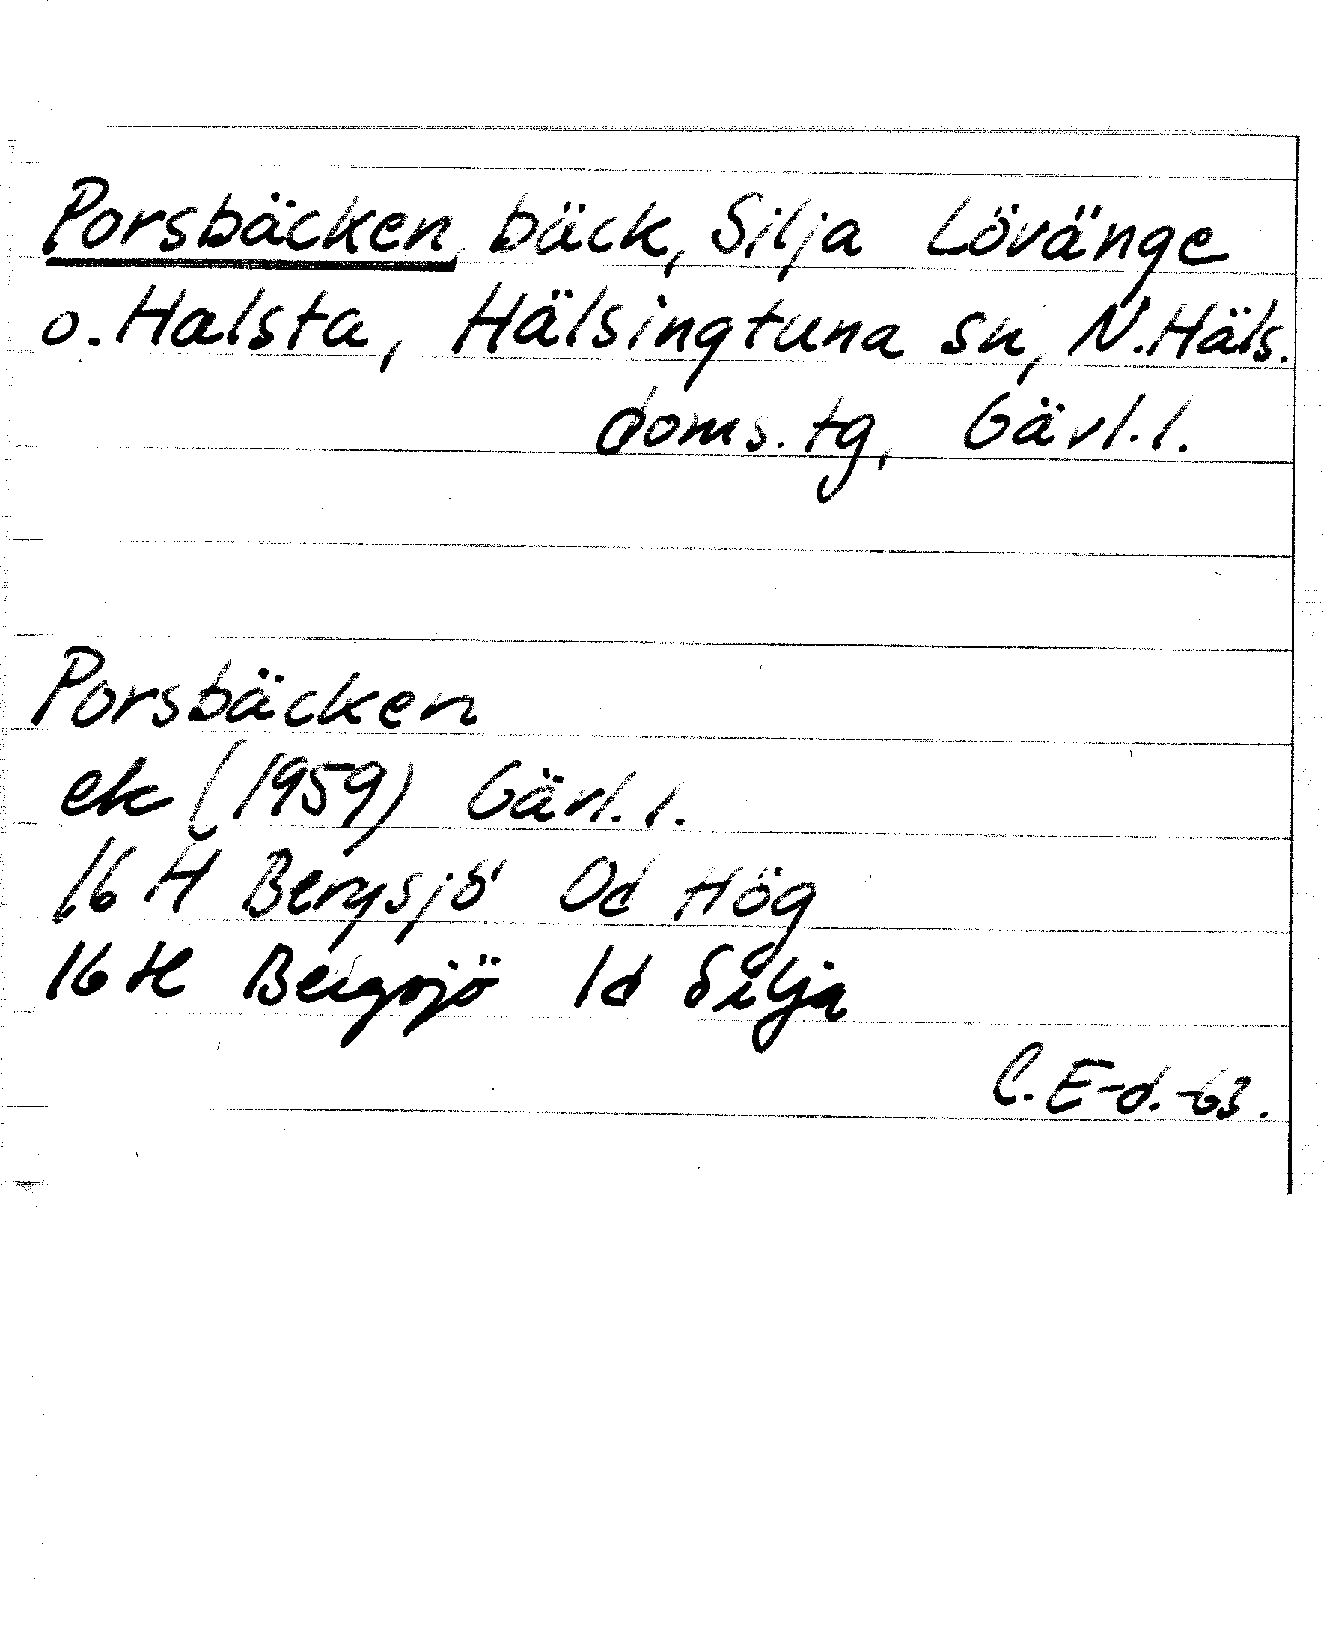 Porsbäcken bäck, Silja Lövänge
o. Halsta, Hälsingtuna sn, N. Häls.
doms. tg, Gävl. l.
Porsbäcken
ek (1959) Gävl. l.
16 H Bergsjö 0d Hög
16 H Bergsjö 1d Silja
C. E-d. -63.